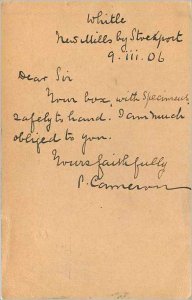 Whitle
New Mills by Stockport
9. iii. 06
Dear Sir
Your box, with specimens,
safely to hand. I am much
obliged to you.
Yours faithfully
P. Cameron